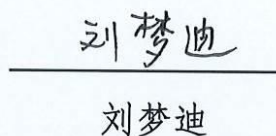 刘梦迪
刘梦迪